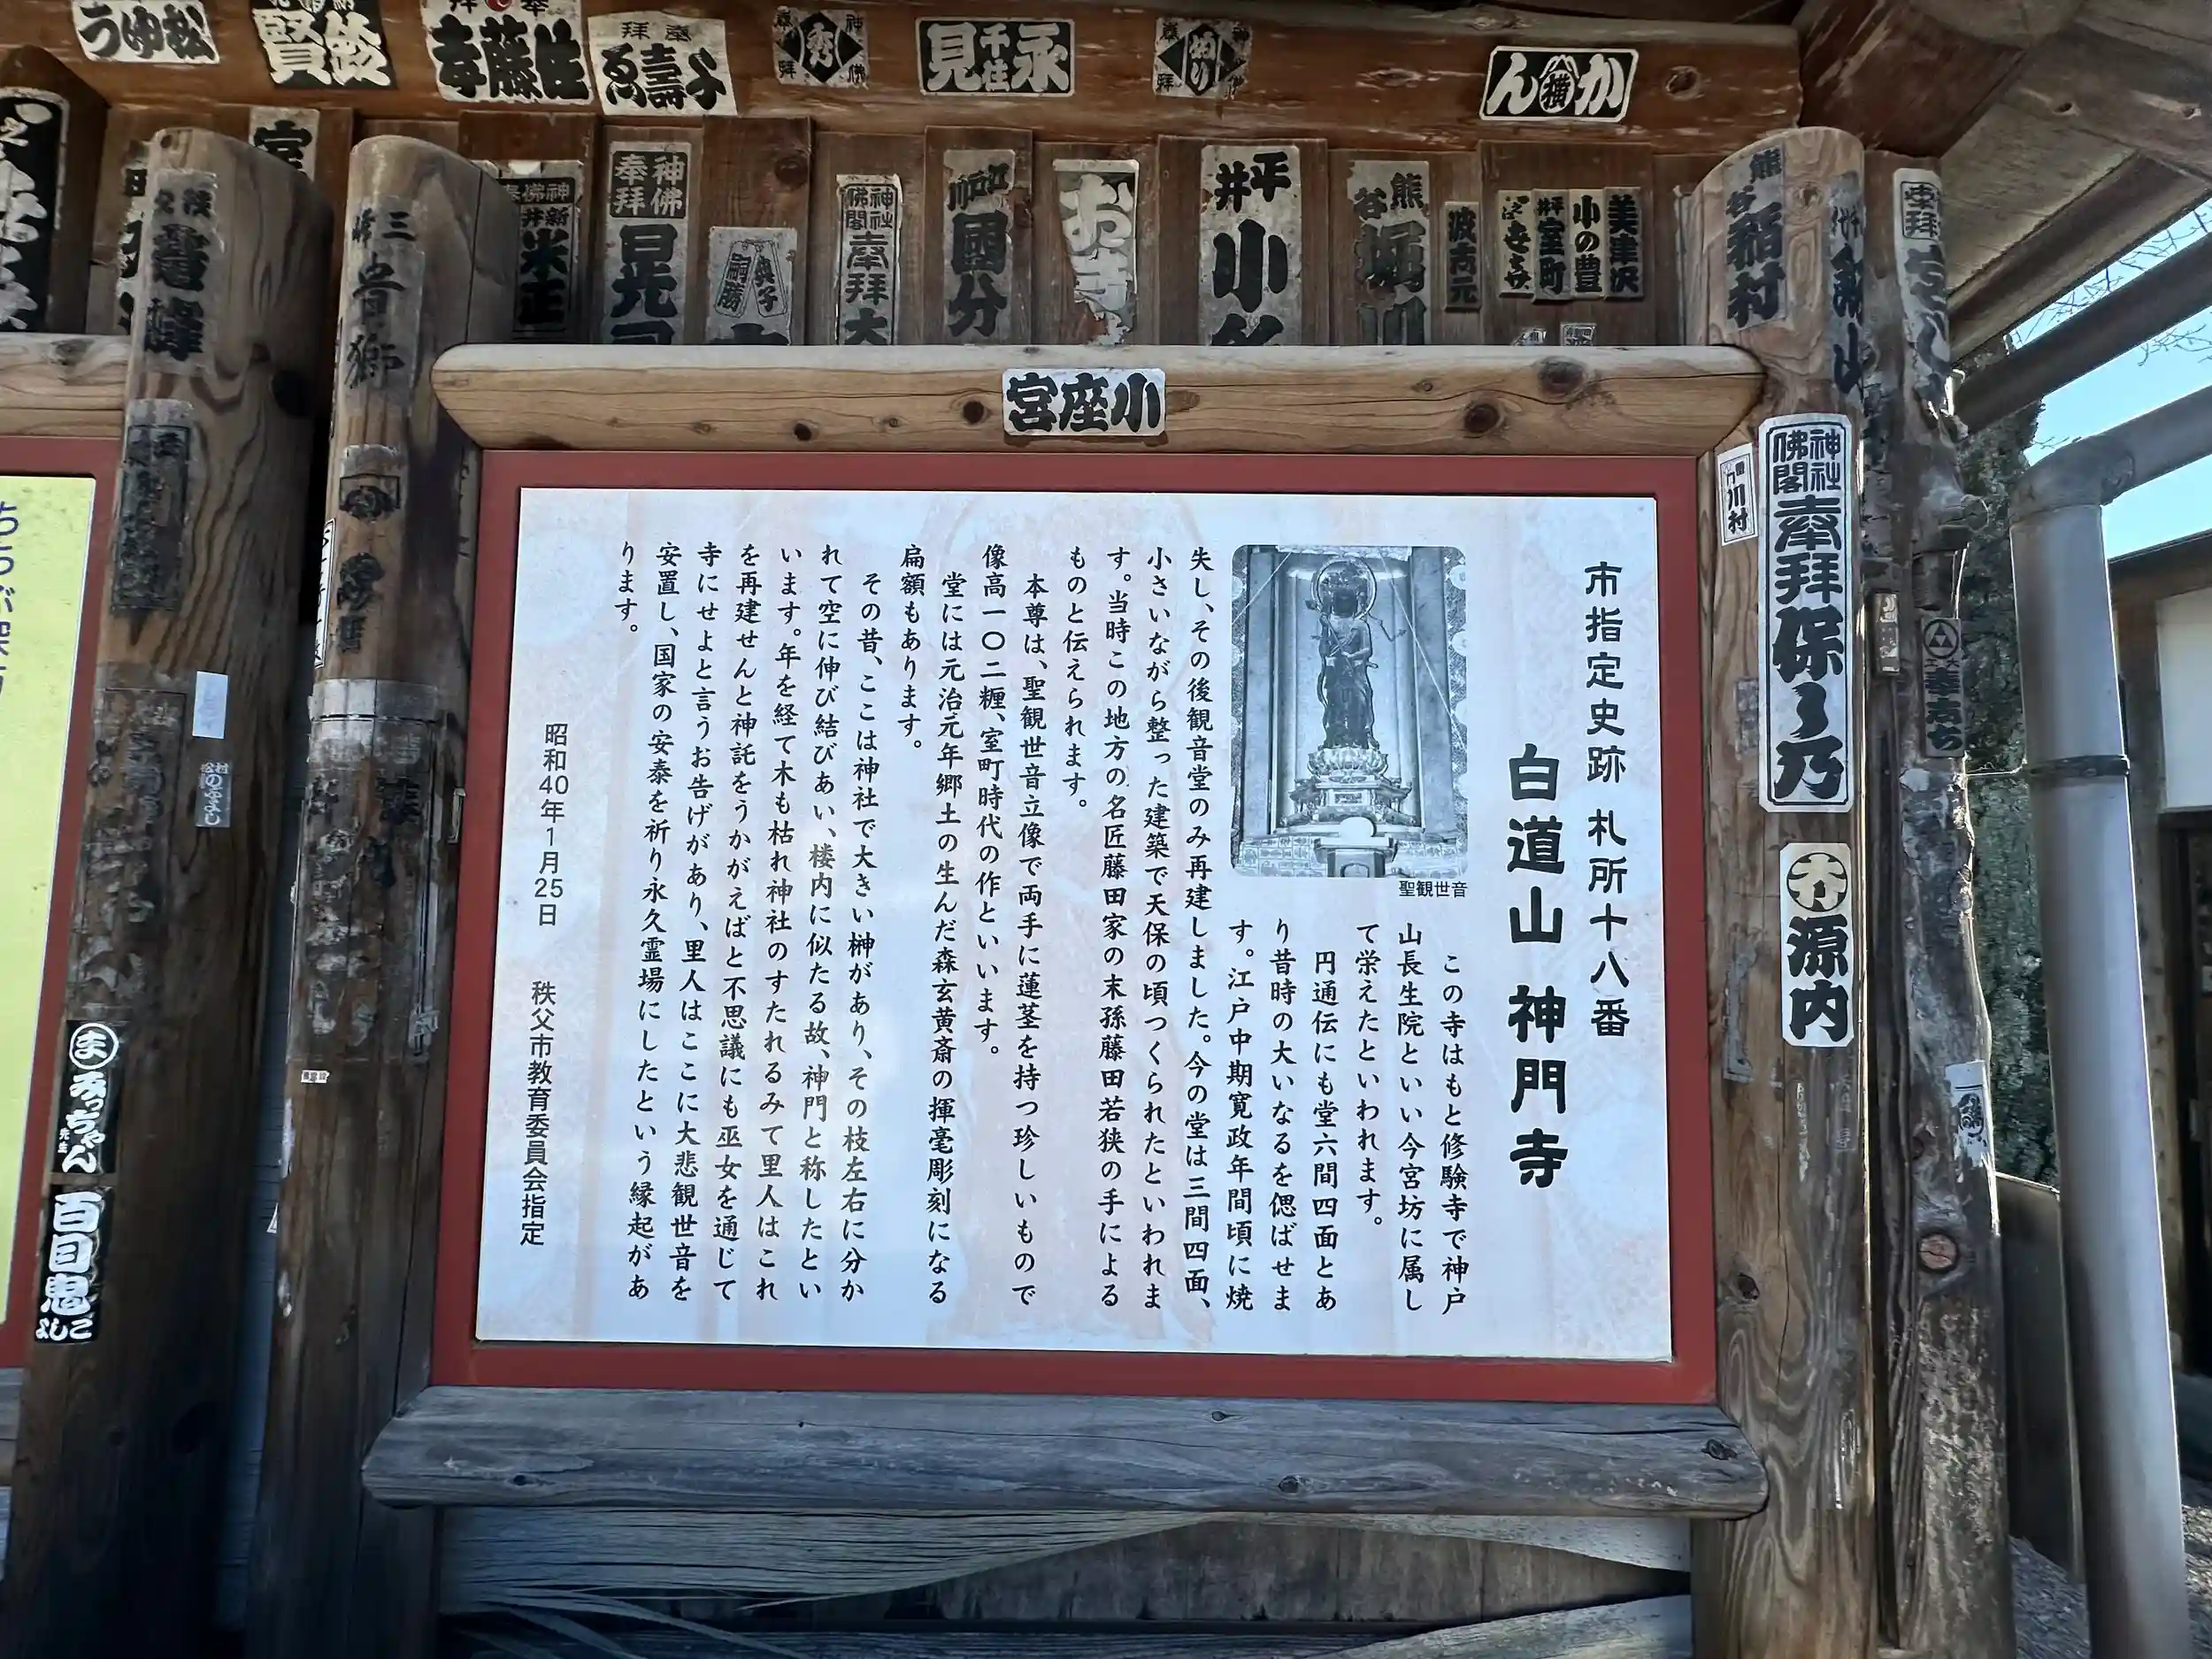 市指定史跡 札所十八番
白道山 神門寺
聖観世音
この寺はもと修験寺で神戸
山長生院といい今宮坊に属し
て栄えたといわれます。
円通伝にも堂六間四面とあ
り昔時の大いなるを偲ばせま
す。江戸中期寛政年間頃に焼
失し、その後観音堂のみ再建しました。今の堂は三間四面、
小さいながら整った建築で天保の頃つくられたといわれま
す。当時この地方の名匠藤田家の末孫藤田若狭の手による
ものと伝えられます。
本尊は、聖観世音立像で両手に蓮茎を持つ珍しいもので
像高一〇二糎、室町時代の作といいます。
堂には元治元年郷土の生んだ森玄黄斎の揮毫彫刻になる
扁額もあります。
その昔、ここは神社で大きい榊があり、その枝左右に分か
れて空に伸び結びあい、楼内に似たる故、神門と称したとい
います。年を経て木も枯れ神社のすたれるみて里人はこれ
を再建せんと神託をうかがえばと不思議にも巫女を通じて
寺にせよと言うお告げがあり、里人はここに大悲観世音を
安置し、国家の安泰を祈り永久霊場にしたという縁起があ
ります。
昭和40年1月25日 秩父市教育委員会指定
小座宮
かん
横
永見
千住
佐藤幸
鈴賢
松ゆう
神佛
奉拝
國分
平井
小
熊谷
波木元
美津次
小の豊
平井
室町
熊谷
稲村
神社
佛閣
奉拝
保乃
源内
川村
米正
三峰
音獅
みっちゃん
先生
百目鬼
よしこ